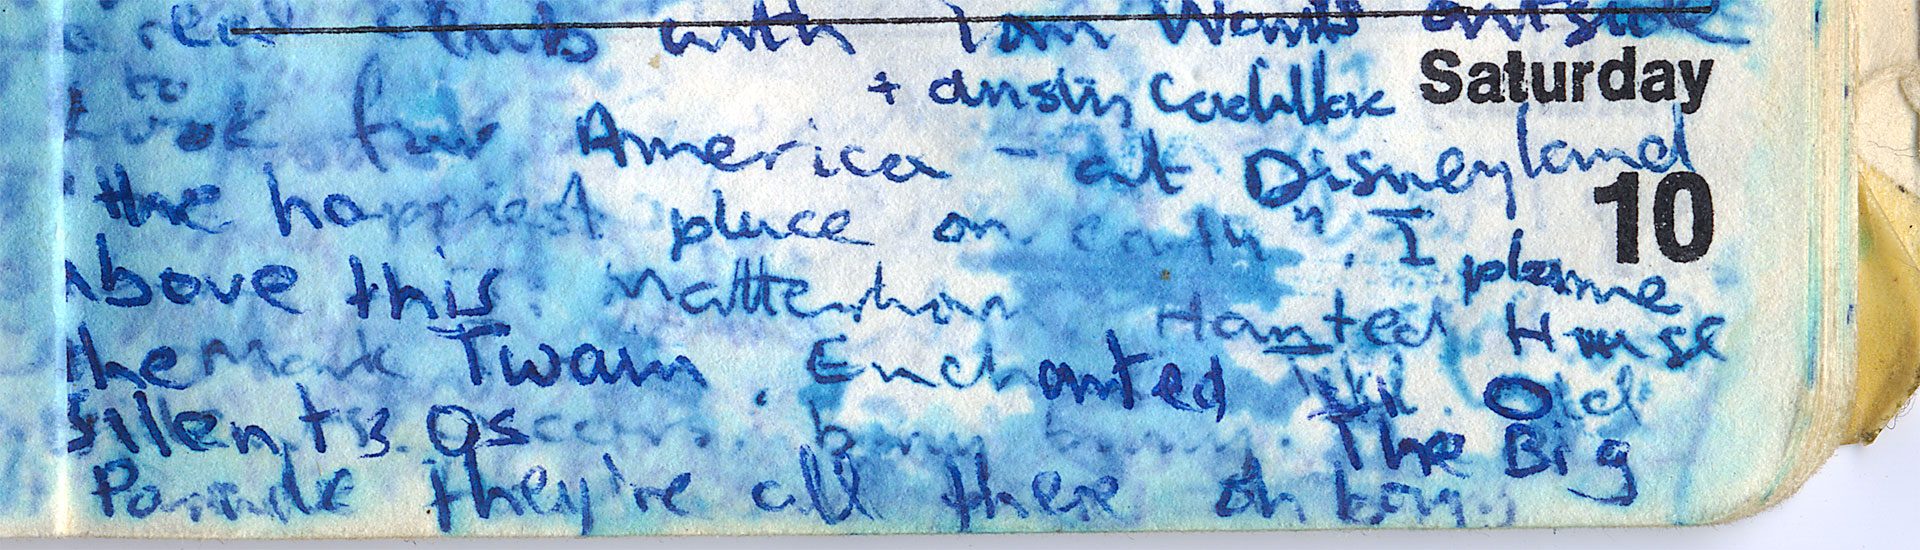 a real with Tom Waits outside
+ austin Cadillac Saturday
to
Look for America - at Disneyland
"the happiest place on earth". I 10
plane
above this. Matterhorn Hanted House
the Mark Twain. Enchanted Tiki. Old
Silents. Oscars. The Big
Parade they're all there oh boy.